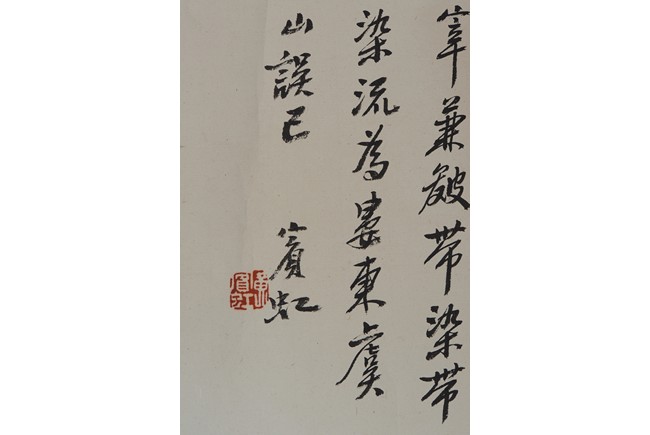 兼皴帶染帶
染流為婁東虞
山誤已
賓虹
黃賓虹